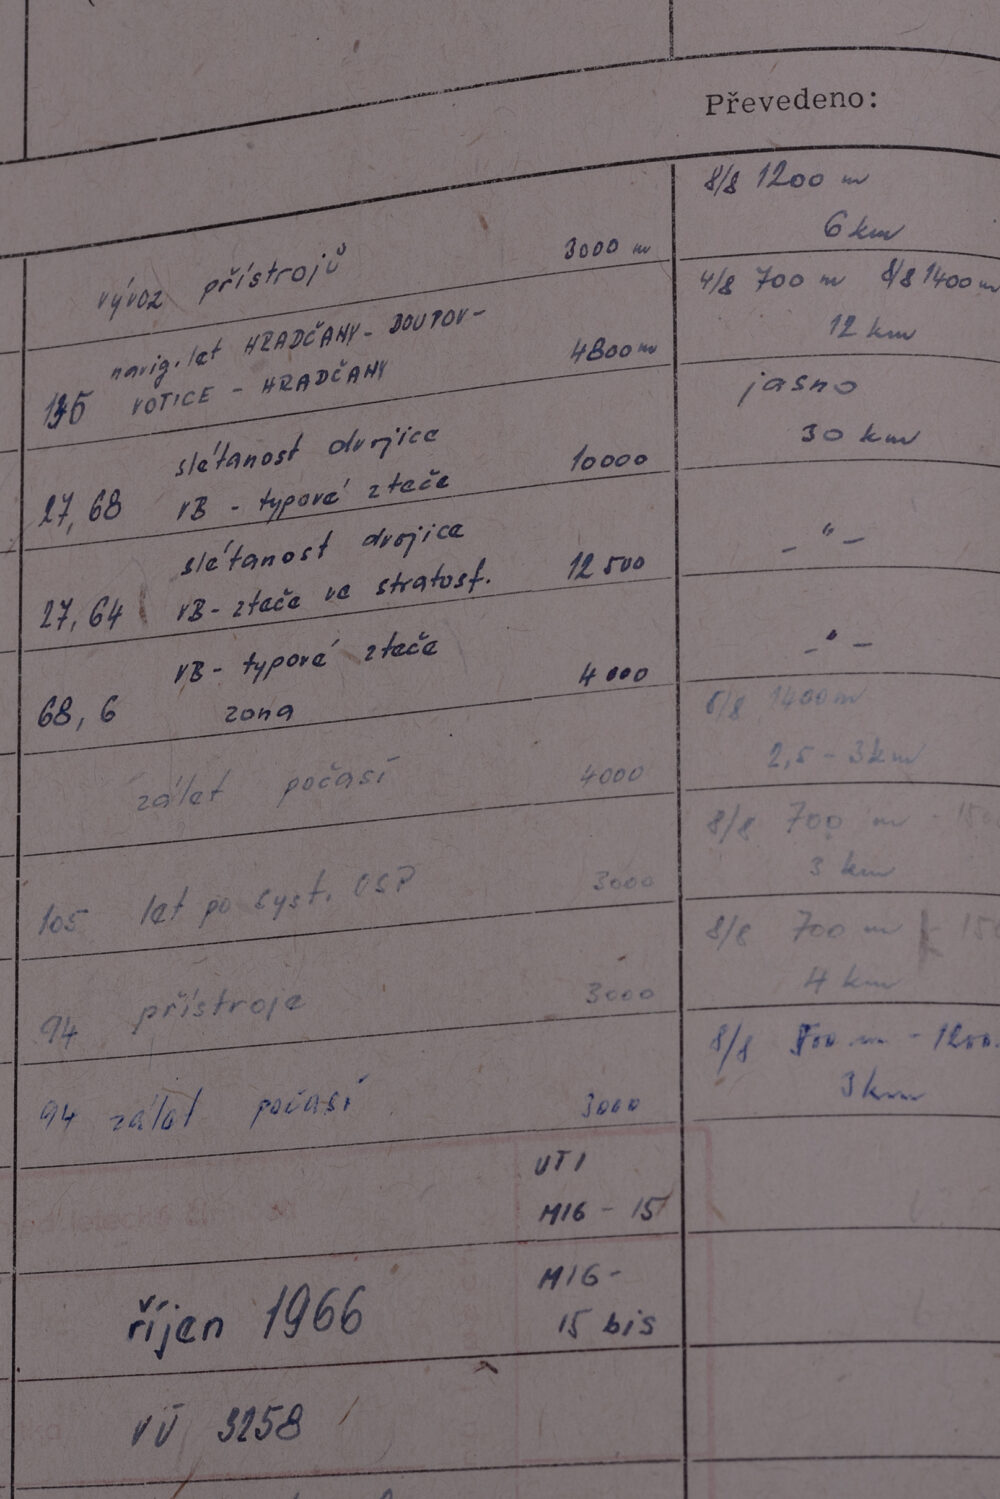 Převedeno:
8/8 1200 m
vývoz přístrojů 3000 m 6 km
navig. let HRADČANY - DOUPOV - 4/8 700 m 8/8 1400 m
VOTICE - HRADČANY 4800 m 12 km
slétanost dvojice jasno
27, 68 VB - typové zteče 10000 30 km
slétanost dvojice
27, 64 VB - zteče ve stratosf. 12 500 - " -
VB - typové zteče
68, 6 zona 4000 - " -
8/8 1400 m
zálet počasí 4000 2,5 - 3 km
8/8 700 m -
105 let po syst. OSP 3000 3 km
8/8 700 m -
94 přístroje 3000 4 km
8/8 - 1200
94 zálet počasí 3000 3 km
UTI
MIG - 15
MIG -
říjen 1966 15 bis
VÚ 3258